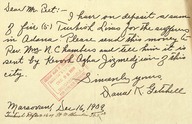 Dear Mr. Peet:-
I have on deposit a sum
of five (5) Turkish Liras for the sufferers
in Adana. Please send this money to
Rev. Mrs. N. Chambers and tell him it is
sent by Agha of
this city.
Sincerely yours,
Dana K. Getchell
Marsovan, Dec. 16, 1909